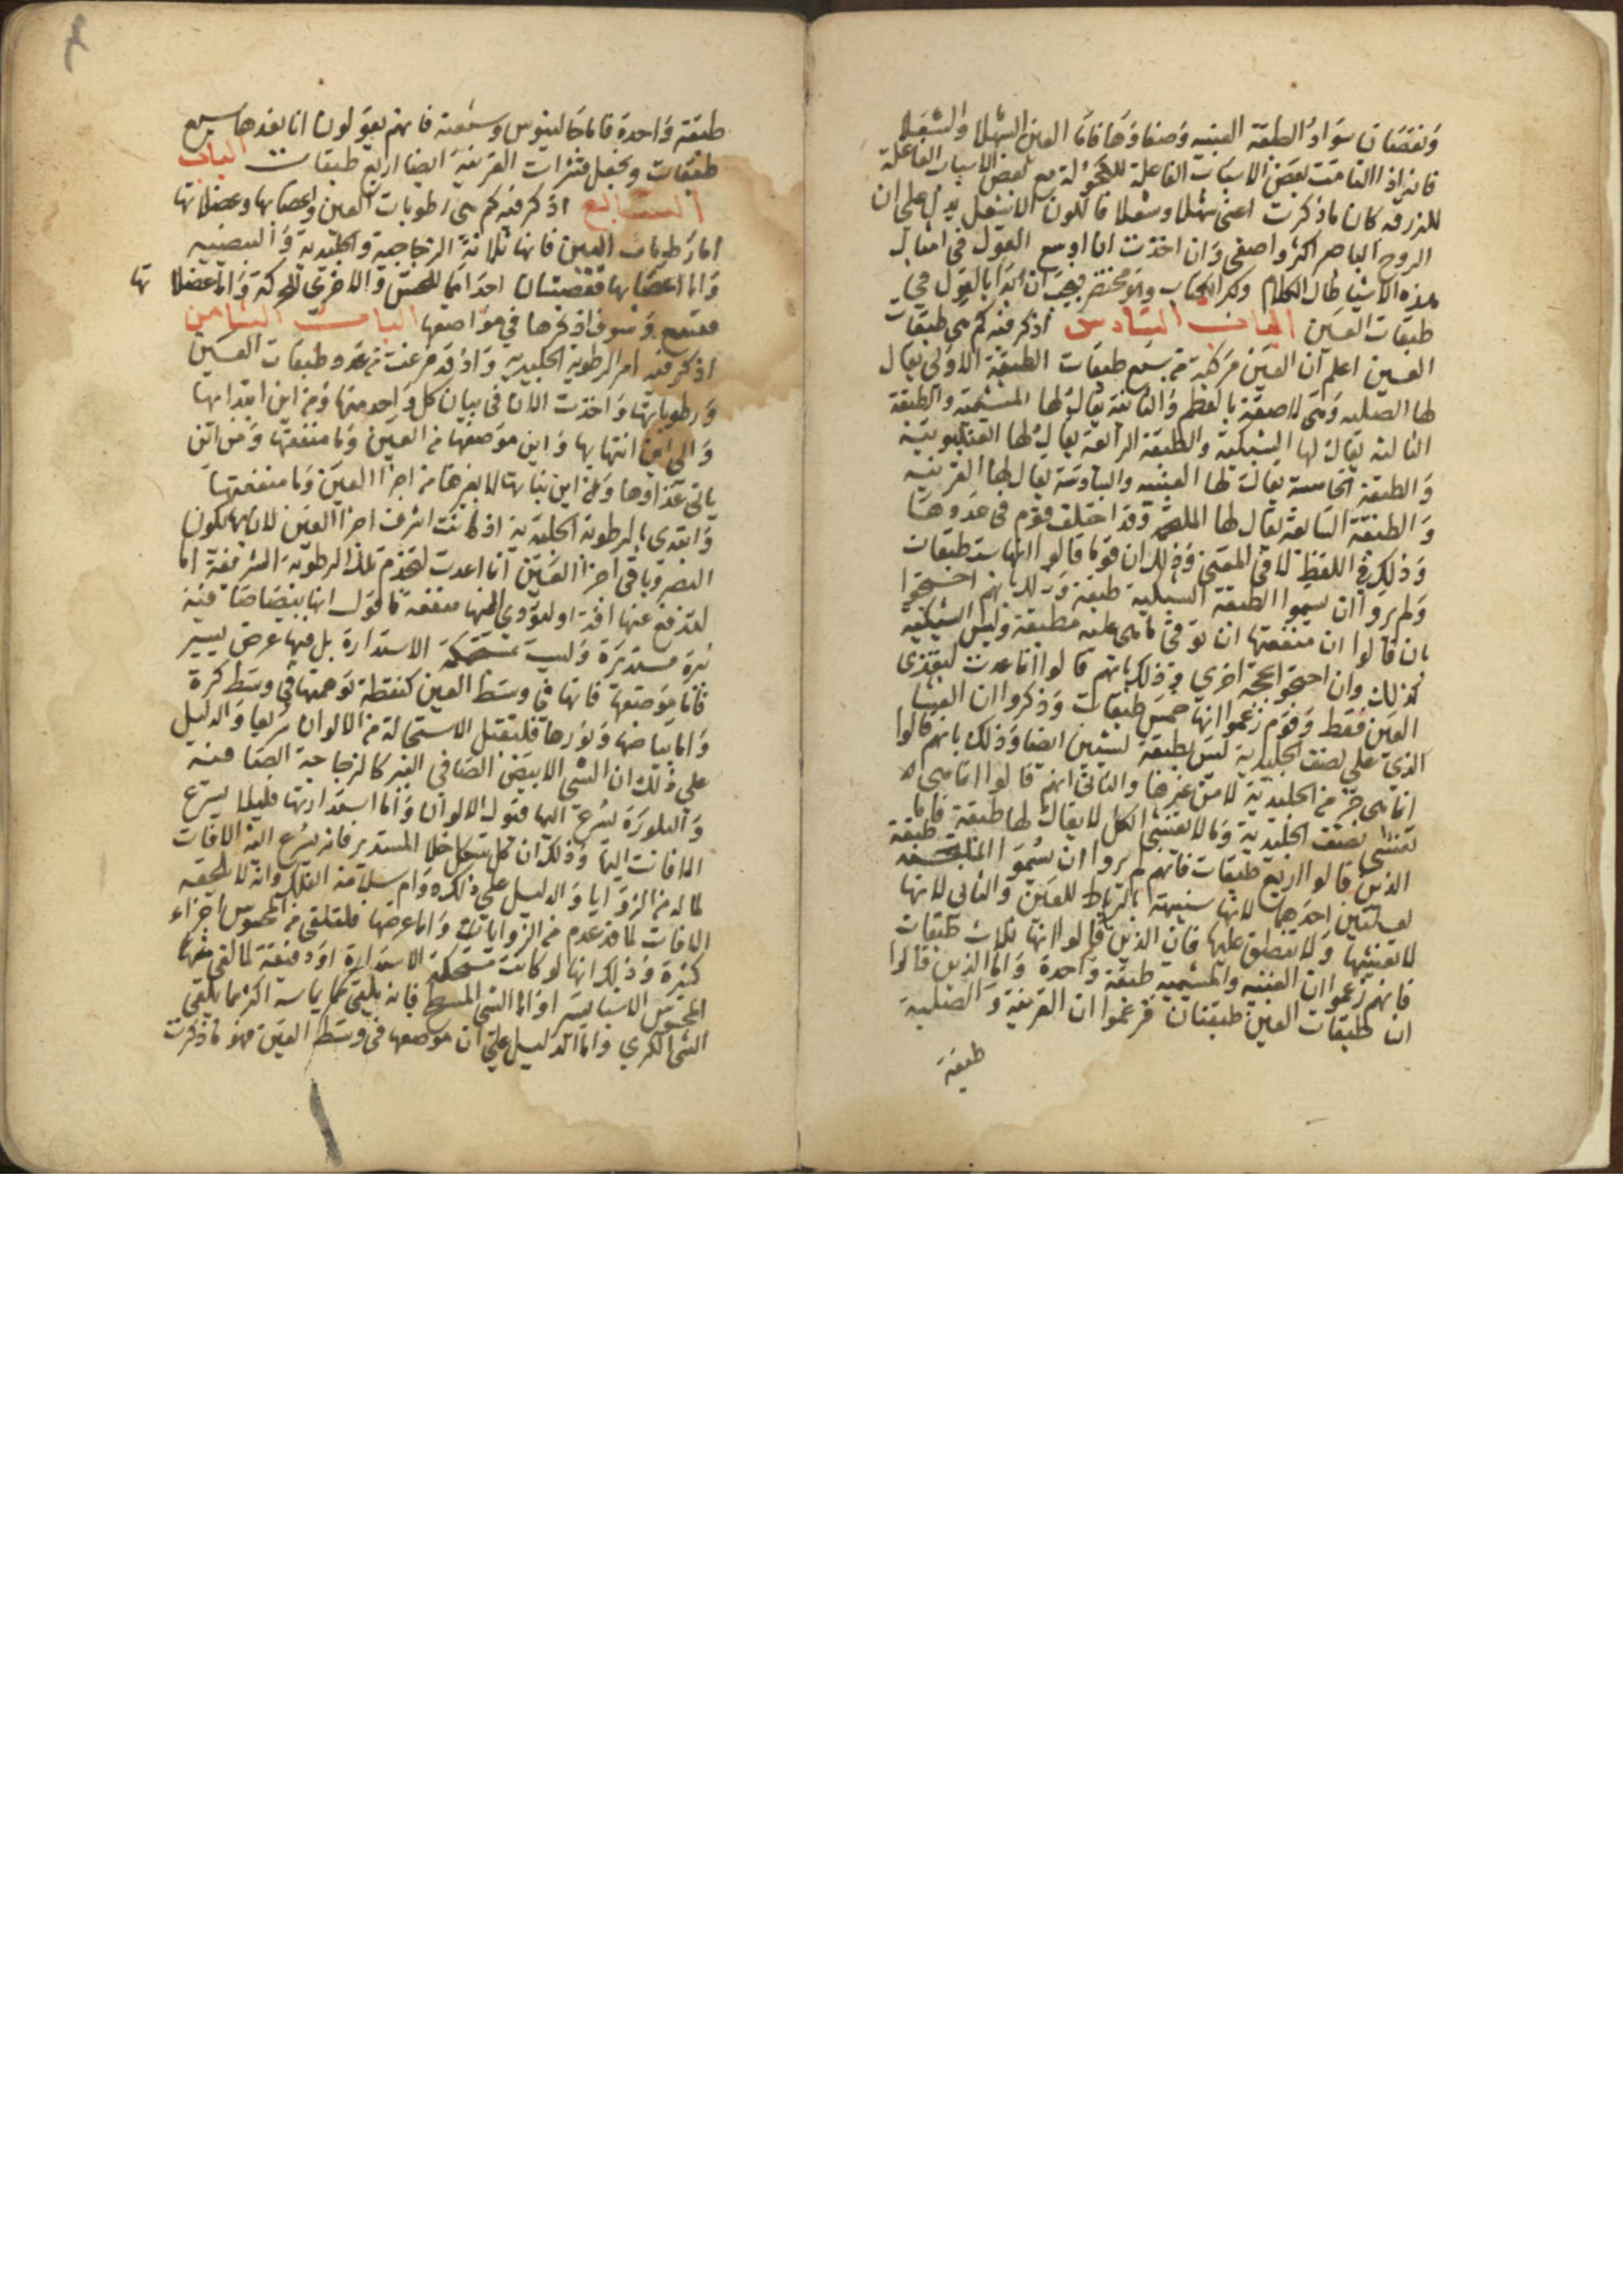 ونقصان سواد الطبقة العنبيه وصفاوها فاما العين الشهلا والشعلا
فانه اذا التامت بعض الاسباب الفاعلة للكحولة مع بعض الاسباب الفاعلة
للزرقه كان ما ذكرت اعنى شهلا وشعلا فاللون الاشعل يدل على ان
الروح الباصر اكثر واصفى وان اخذت ان اوسع القول في امثال
هذه الاشيا طال الكلام وكبر الكتاب والامر مختصر فيجب ان ابدا بالقول في
طبقات العين الباب السادس اذكر فيه كم هي طبقات
العين اعلم ان العين مركبة من سبع طبقات الطبقة الاولى يقال
لها الصلبه وهى لاصقة بالعظم والثانية يقال لها المشيمية والطبقة
الثالثة يقال لها الشبكية والطبقة الرابعة يقال لها العنكبوتية
والطبقة الخامسة يقال لها العنبيه والسادسة يقال لها القرنيه
والطبقة السابعة يقال لها الملتحم وقد اختلف قوم فى عددها
وذلك في اللفظ لا في المعنى وذلك ان قوما قالوا انها ست طبقات
ولم يروا ان يسموا الطبقة الشبكية طبقة وذلك انهم احتجوا
بان قالوا ان منفعتها ان توقى ما هي عليه مطبقة وليس الشبكيه
كذلك وان احتجوا بحجة اخري وذلك بانهم قالوا انما عدت لتغذى
العين فقط وقوم زعموا انها خمس طبقات وذكروا ان الغشا
الذي على نصف الجليدية ليس بطبقة لشيين ايضا وذلك بانهم قالوا
انما هي جزء من الجليدية لا من غيرها والثاني انهم قالوا انما هي
تغشى نصف الجليدية وما لا يغشى الكل لا يقال لها طبقة فاما
الذين قالوا اربع طبقات فانهم لم يروا ان يسموا الملتحمه طبقة
لعلتين احدهما لانها شبيهة بالرباط للعين والثانى لانها
لا تغشيها ولا تنطبق عليها فان الذين قالوا انها ثلاث طبقات
فانهم زعموا ان العنبيه والمشيميه طبقة واحدة واما الذين قالوا
ان طبقات العين طبقتان فزعموا ان القرنية والصلبية
طبقة
طبقة واحدة فاما جالينوس وشيعته فانهم يقولون انا نعدها سبع
طبقات ونجعل قشرات القرنية ايضا اربع طبقات الباب
السابع اذكر فيه كم هي رطوبات العين واعصابها وعضلاتها
اما رطوبات العين فانها ثلاثة الزجاجيه والجليدية والبيضييه
واما اعصابها فعصبتان احداهما للحس والاخرى للحركة واما عضلاتها
فتسع وسوف اذكرها في مواضعها الباب الثامن
اذكر فيه امر الرطوبه الجليديه واذ قد فرغت من عدد طبقات العين
ورطوباتها واخذت الان فى بيان كل واحد منها ومن اين ابتداها
والى اين انتهايها واين موضعها من العين وما منفعتها ومن اين
ياتى غذاوها ومن اين نباتها لا بغيرها من اجزا العين وما منفعتها
وابتدي بالرطوبة الجليدية اذ كانت اشرف اجزا العين لان بها يكون
البصر وباقى اجزا العين انما اعدت لتخدم تلك الرطوبة الشريفة اما
لتدفع عنها افة او لتؤدي اليها منفعة فاقول انها بيضا صافية
نيرة مستديرة وليست بمستحكمة الاستدارة بل فيها عرض يسير
فاما موضعها فانها في وسط العين كنقطة توهمتها في وسط كرة
واما بياضها ونورها فلتقبل الاستحالة من الالوان سريعا والدليل
على ذلك ان الشى الابيض الصافي النير كالزجاجة الصافية
والبلورة يسرع اليها قبول الالوان واما استدارتها فليلا يسرع
الافات اليها وذلك ان كل شكل خلا المستدير فانه يسرع اليه الافات
لما له من الزوايا والدليل على ذلك دوام سلامة الفلك وانه لا يلحقه
الافات لما قد عدم من الزوايا واما عرضها فلتلقى من المحسوس اجزاء
كثيرة وذلك انها لو كانت مستحكمة الاستدارة او دقيقة لما لقى منها
المحسوس الا شيا يسيرا واما الشى المسطح فانه يلقى كما يماسه اكثر مما يلقى
الشى الكري واما الدليل على ان موضعها فى وسط العين فهو ما ذكرت